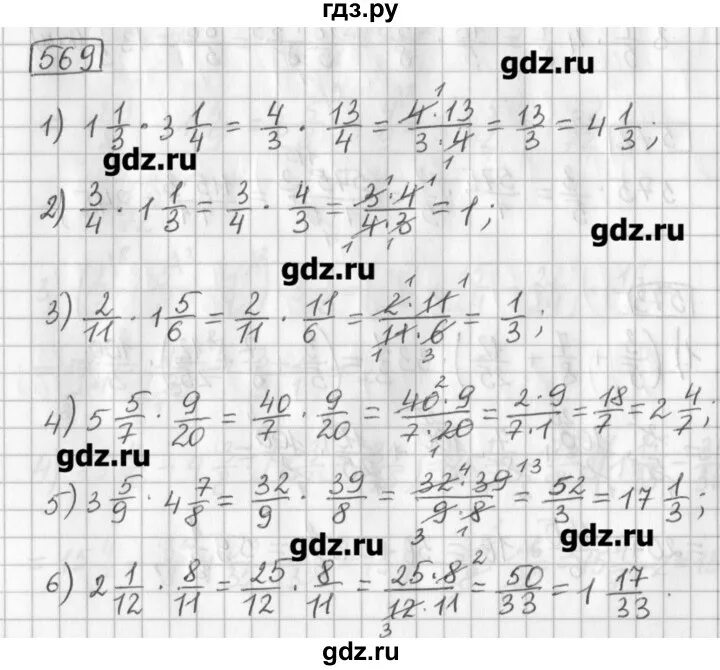 гдз.ру
569
gdz.ru
1) 1 1/3 · 3 1/4 = 4/3 · 13/4 = 4·13/3·4 = 13/3 = 4 1/3;
gdz.ru
2) 3/4 · 1 1/3 = 3/4 · 4/3 = 3·4/4·3 = 1;
gdz.ru
gdz.ru
3) 2/11 · 1 5/6 = 2/11 · 11/6 = 2·11/11·6 = 1/3;
4) 5 5/7 · 9/20 = 40/7 · 9/20 = 40·9/7·20 = 2·9/7·1 = 18/7 = 2 4/7;
gdz.ru
5) 3 5/9 · 4 7/8 = 32/9 · 39/8 = 32·39/9·8 = 52/3 = 17 1/3;
gdz.ru
gdz.ru
6) 2 1/12 · 8/11 = 25/12 · 8/11 = 25·8/12·11 = 50/33 = 1 17/33.
gdz.ru